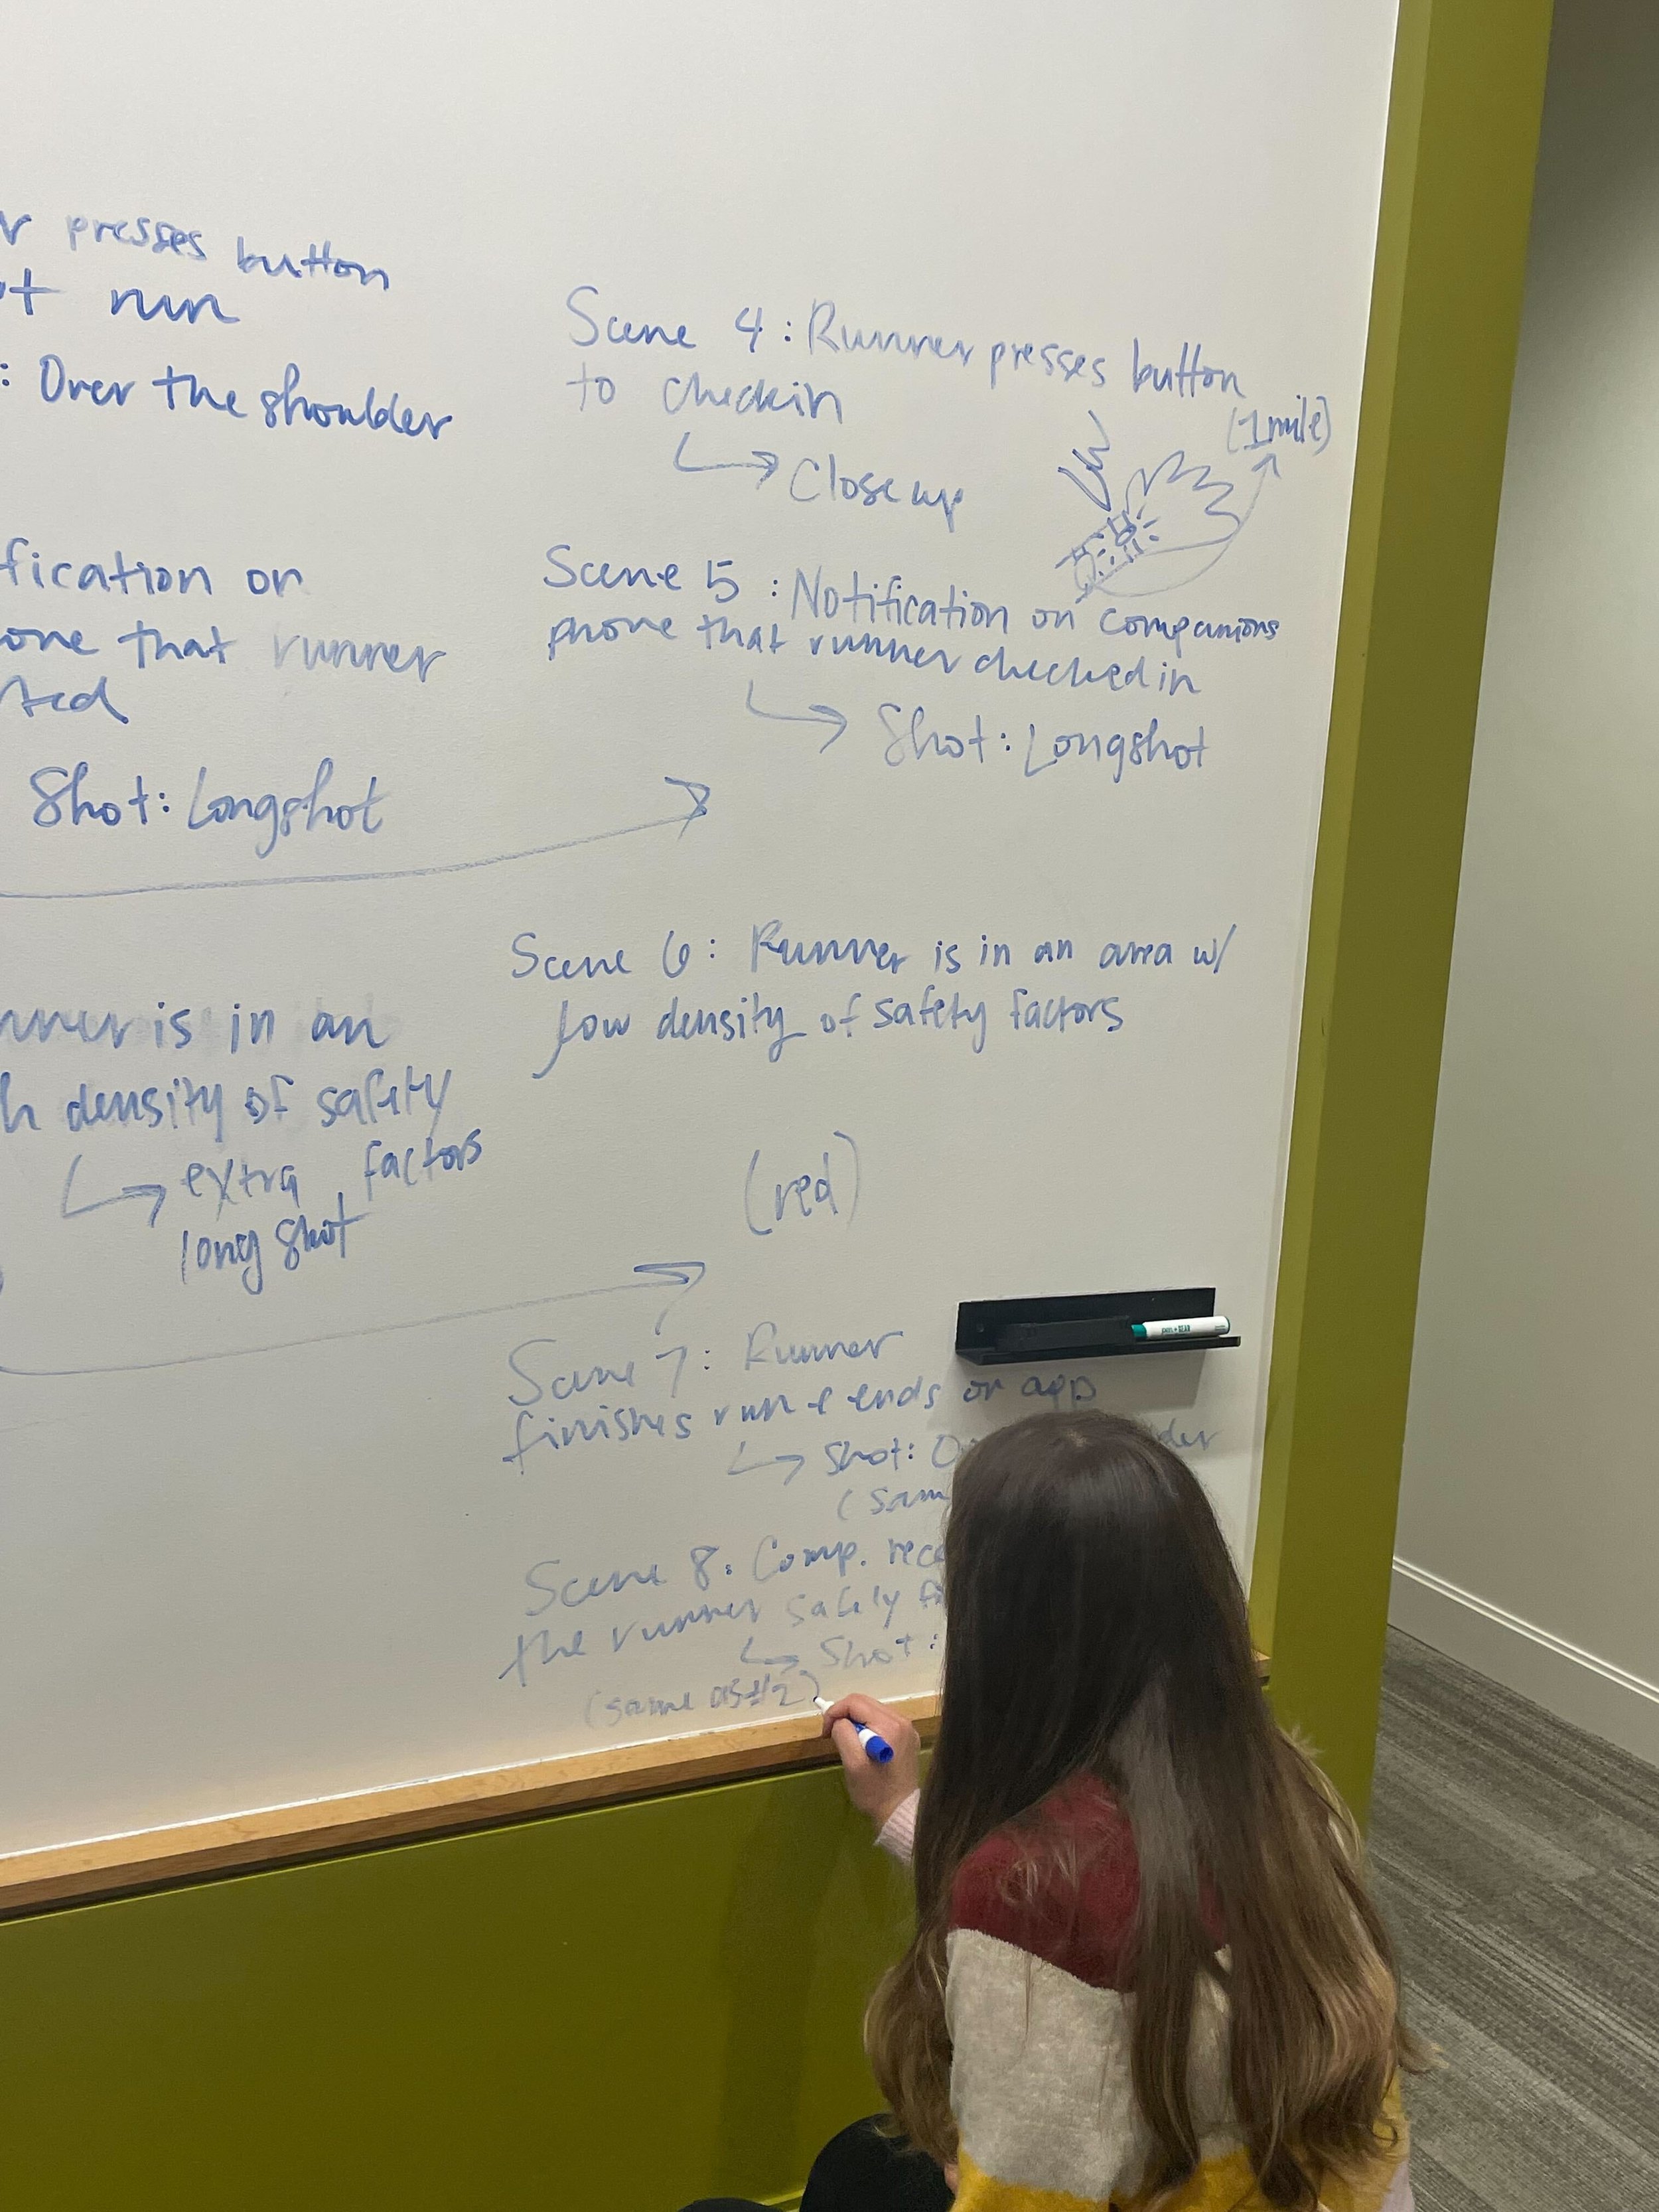 presses button
run
: Over the shoulder
fication on
one that runner
Shot: Longshot
is in an
density of safety
factors
extra
long shot
Scene 4: Runner presses button
to checkin
(1 mile)
Close up
Scene 5: Notification on companions
phone that runner checked in
Shot: Longshot
Scene 6: Runner is in an area w/
low density of safety factors
(red)
Scene 7: Runner
finishes run & ends on app
Shot: O der
(sam
Scene 8: Comp. rec
the runner safely fi
Shot:
(same as #2)